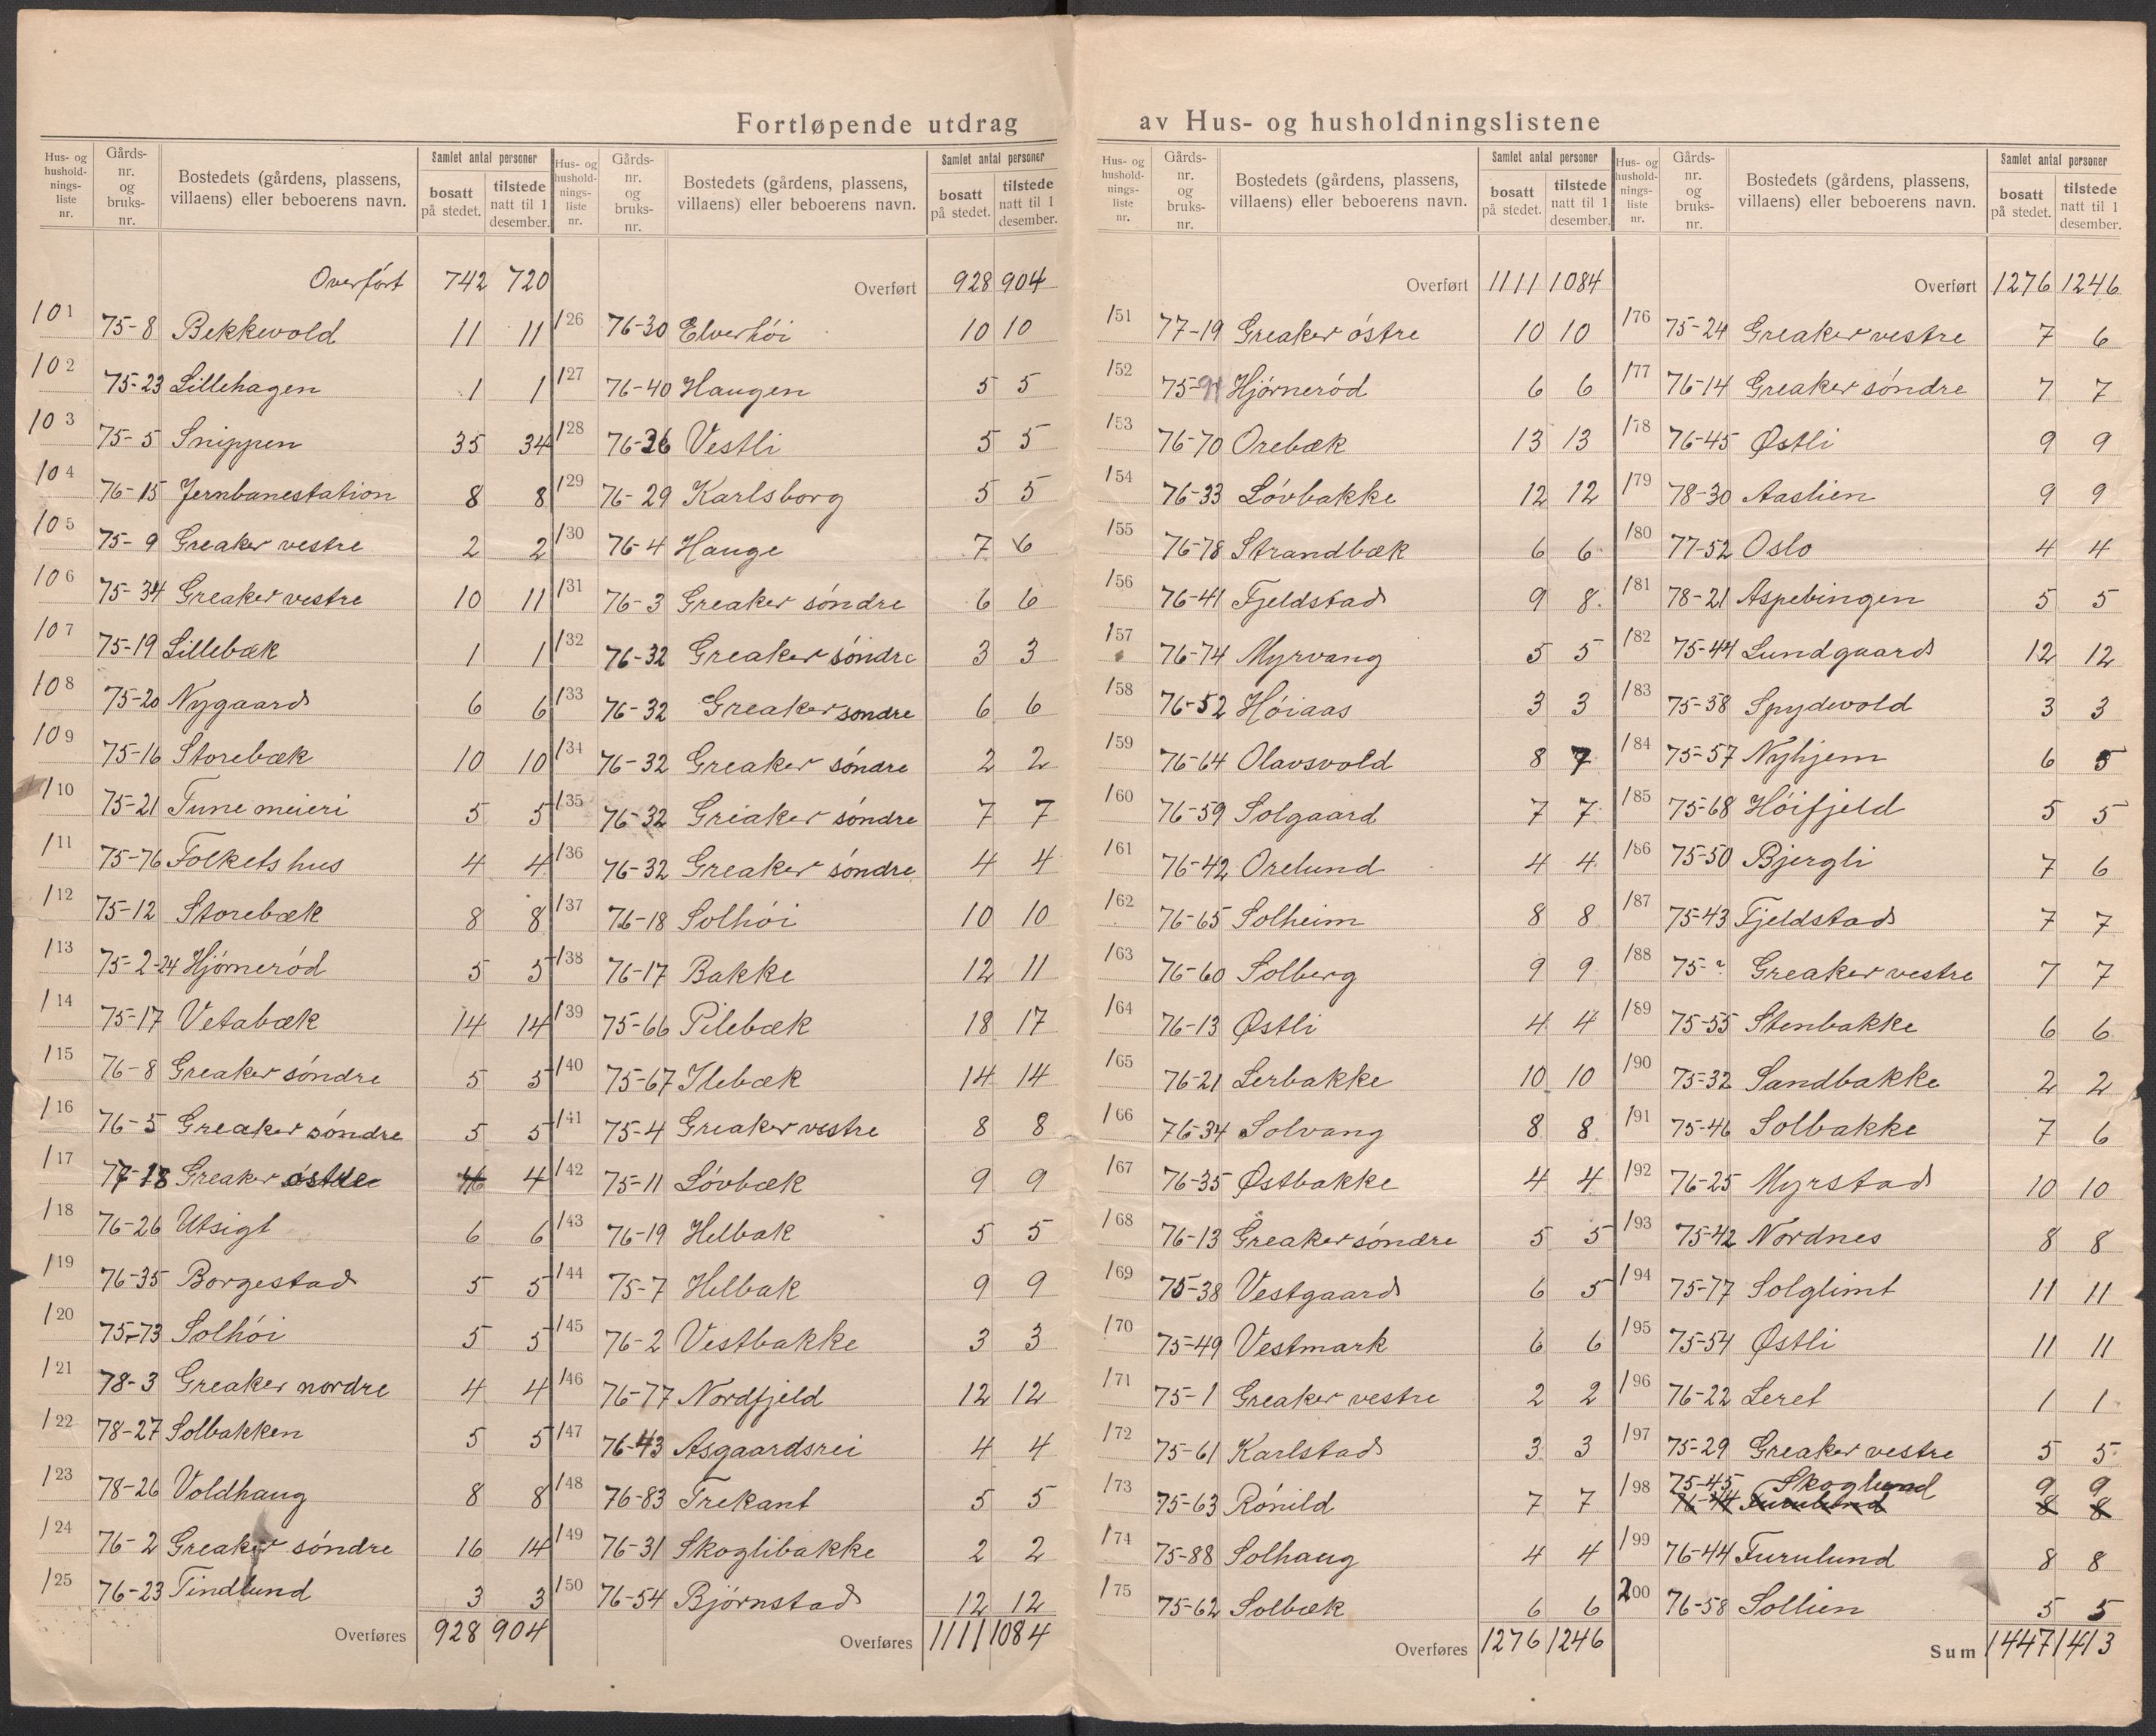 Fortløpende utdrag av Hus- og husholdningslistene
Hus- og husholdnings- liste nr. | Gårds- nr. og bruks- nr. | Bostedets (gårdens, plassens, villaens) eller beboerens navn. | Samlet antal personer | bosatt på stedet. | tilstede natt til 1 desember.
Overført 742 720
101 75-8 Bekkevold 11 11
102 75-23 Lillehagen 1 1
103 75-5 Snippen 35 34
104 76-15 Jernbanestation 8 8
105 75-9 Greaker vestre 2 2
106 75-34 Greaker vestre 10 11
107 75-19 Lillebæk 1 1
108 75-20 Nygaard 6 6
109 75-16 Storebæk 10 10
110 75-21 Tune meieri 5 5
111 75-76 Folkets hus 4 4
112 75-12 Storebæk 8 8
113 75-2-24 Hjørnerød 5 5
114 75-17 Vetabæk 14 14
115 76-8 Greaker søndre 5 5
116 76-5 Greaker søndre 5 5
117 77-18 Greaker østre 4
118 76-26 Utsigt 6 6
119 76-35 Borgestad 5 5
120 75-73 Solhøi 5 5
121 78-3 Greaker nordre 4 4
122 78-27 Solbakken 5 5
123 78-26 Voldhaug 8 8
124 76-2 Greaker søndre 16 14
125 76-23 Tindlund 3 3
Overføres 928 904
Hus- og husholdnings- liste nr. | Gårds- nr. og bruks- nr. | Bostedets (gårdens, plassens, villaens) eller beboerens navn. | Samlet antal personer | bosatt på stedet. | tilstede natt til 1 desember.
Overført 928 904
126 76-30 Elverhøi 10 10
127 76-40 Haugen 5 5
128 76-36 Vestli 5 5
129 76-29 Karlsborg 5 5
130 76-4 Hauge 7 6
131 76-3 Greaker søndre 6 6
132 76-32 Greaker søndre 3 3
133 76-32 Greaker søndre 6 6
134 76-32 Greaker søndre 2 2
135 76-32 Greaker søndre 7 7
136 76-32 Greaker søndre 4 4
137 76-18 Solhøi 10 10
138 76-17 Bakke 12 11
139 75-66 Pilebæk 18 17
140 75-67 Ilebæk 14 14
141 75-4 Greaker vestre 8 8
142 75-11 Løvbæk 9 9
143 76-19 Helbak 5 5
144 75-7 Helbak 9 9
145 76-2 Vestbakke 3 3
146 76-77 Nordfjeld 12 12
147 76-43 Asgaardsrei 4 4
148 76-83 Trekant 5 5
149 76-31 Skoglibakke 2 2
150 76-54 Bjørnstad 12 12
Overføres 1111 1084
Hus- og husholdnings- liste nr. | Gårds- nr. og bruks- nr. | Bostedets (gårdens, plassens, villaens) eller beboerens navn. | Samlet antal personer | bosatt på stedet. | tilstede natt til 1 desember.
Overført 1111 1084
151 77-19 Greaker østre 10 10
152 75-91 Hjørnerød 6 6
153 76-70 Orebæk 13 13
154 76-33 Løvbakke 12 12
155 76-78 Strandbæk 6 6
156 76-41 Fjeldstad 9 8
157 76-74 Myrvang 5 5
158 76-52 Høiaas 3 3
159 76-64 Olavsvold 8 7
160 76-59 Solgaard 7 7
161 76-42 Orelund 4 4
162 76-65 Solheim 8 8
163 76-60 Solberg 9 9
164 76-13 Østli 4 4
165 76-21 Lerbakke 10 10
166 76-34 Solvang 8 8
167 76-35 Østbakke 4 4
168 76-13 Greaker søndre 5 5
169 75-38 Vestgaard 6 5
170 75-49 Vestmark 6 6
171 75-1 Greaker vestre 2 2
172 75-61 Karlstad 3 3
173 75-63 Rønild 7 7
174 75-88 Solhaug 4 4
175 75-62 Solbæk 6 6
Overføres 1276 1246
Hus- og husholdnings- liste nr. | Gårds- nr. og bruks- nr. | Bostedets (gårdens, plassens, villaens) eller beboerens navn. | Samlet antal personer | bosatt på stedet. | tilstede natt til 1 desember.
Overført 1276 1246
176 75-24 Greaker vestre 7 6
177 76-14 Greaker søndre 7 7
178 76-45 Østli 9 9
179 78-30 Aaslien 9 9
180 77-52 Oslo 4 4
181 78-21 Aspebingen 5 5
182 75-44 Lundgaard 12 12
183 75-58 Spydevold 3 3
184 75-57 Nyhjem 6 5
185 75-68 Høifjeld 5 5
186 75-50 Bjergli 7 6
187 75-43 Fjeldstad 7 7
188 75-? Greaker vestre 7 7
189 75-55 Stenbakke 6 6
190 75-32 Sandbakke 2 2
191 75-46 Solbakke 7 6
192 76-25 Myrstad 10 10
193 75-42 Nordnes 8 8
194 75-77 Solglimt 11 11
195 75-54 Østli 11 11
196 76-22 Leret 1 1
197 75-29 Greaker vestre 5 5
198 75-45 Skoglund 9 9
76-44 Furulund 8 8
199 76-44 Furulund 8 8
200 76-58 Sollien 5 5
Sum 1447 1413